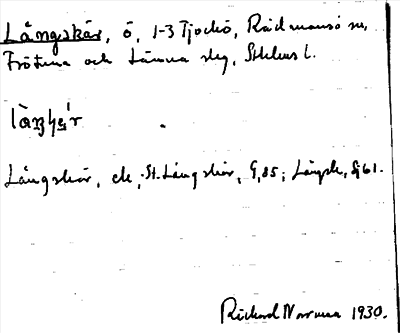 Långskär, ö, 1-3 Tjockö, Rådmansö sn,
Frötuna och Länna slg, Sthlms l.
Långskär, ek, St. Långskär, G, 85; Långsk, Sj 61.
Rickard Norman 1930.